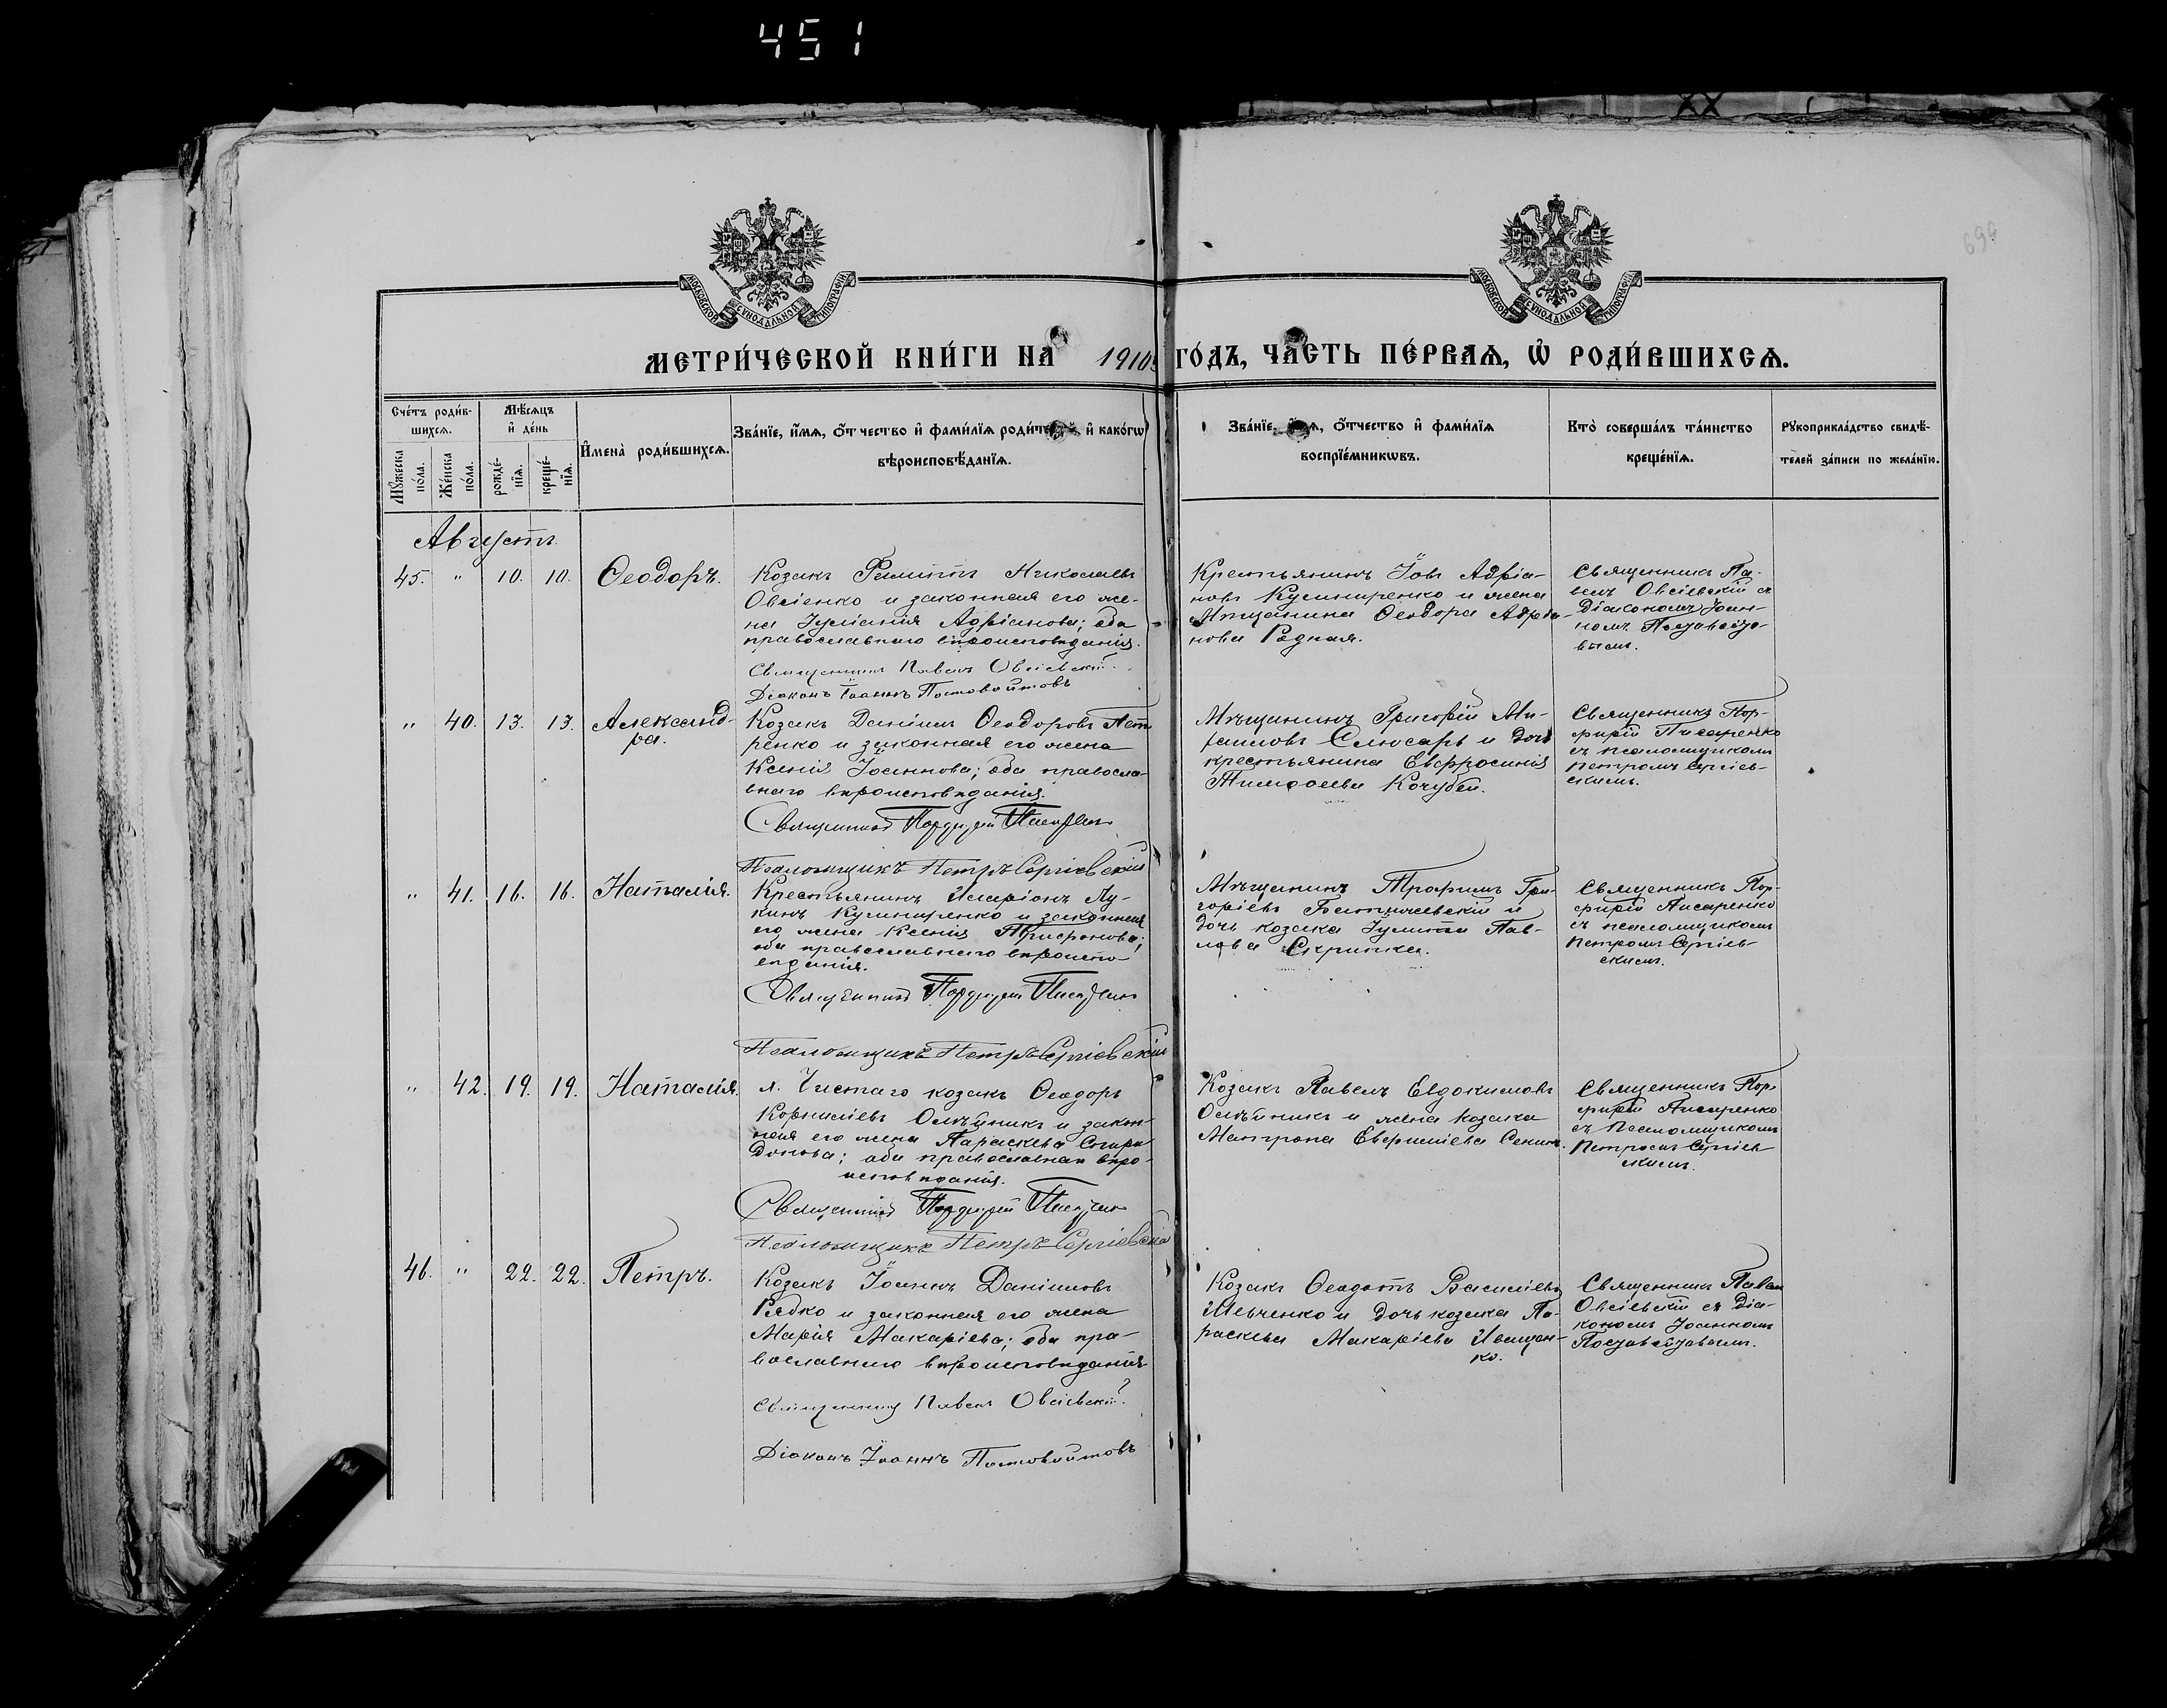 451
696
МОСКОВСКОЙ СѴНОДАЛЬНОЙ ТИПОГРАФІИ
МОСКОВСКОЙ СѴНОДАЛЬНОЙ ТИПОГРАФІИ
МЕТРИ́ЧЕСКОЙ КНИ́ГИ НА 1910 ГО́ДЪ, ЧА́СТЬ ПЕ́РВАѦ, Ѡ҆ РОДИ́ВШИХСѦ.
Сче́тъ роди́в-
шихсѧ.
Мꙋ́жеска по́ла.
Же́нска по́ла.
Мѣ́сѧцъ
и҆ де́нь
рожде́-
нїѧ.
креще́-
нїѧ.
И҆мена̀ роди́вшихсѧ.
Зва́нїе, и҆́мѧ, ѻ҆́тчество и҆ фами́лїѧ роди́телей и҆ како́гѡ
вѣроисповѣ́данїѧ.
Зва́нїе, и҆́мѧ, ѻ҆́тчество и҆ фами́лїѧ
воспрїе́мникѡвъ.
Кто̀ соверша́лъ та́инство
креще́нїѧ.
Рꙋкоприкла́дство свидѣ́-
телей за́писи по жела́нїю.
Августъ.
45. " 10. 10. Ѳеодоръ.
Козакъ Филиппъ Николаевъ
Овсіенко и законная его же-
на Іуліанія Адріанова; оба
православнаго вѣроисповѣданія.
Священникъ Павелъ Овсіевскій.
Діаконъ Іоаннъ Постовойтовъ
Крестьянинъ Іовъ Адріа-
новъ Кушниренко и жена
Мѣщанина Ѳеодора Адріа-
нова Родная.
Священникъ Па-
велъ Овсіевскій съ
Діакономъ Іоан-
номъ Постовойто-
вымъ.
" 40. 13. 13. Александ-
ра.
Козакъ Даніилъ Ѳеодоровъ Пет
ренко и законная его жена
Ксенія Іоаннова; оба правосла-
внаго вѣроисповѣданія.
Священникъ Порфирій Писаренко
Псаломщикъ Петръ Сергіевскій
Мѣщанинъ Григорій Ми-
хаиловъ Слюсарь и дочь
крестьянина Евфросинія
Тимоѳеева Кочубей.
Священникъ Пор-
фирій Писаренко
съ псаломщикомъ
Петромъ Сергіев-
скимъ.
" 41. 16. 16. Наталія.
Крестьянинъ Иларіонъ Лу-
кинъ Кушниренко и законная
его жена Ксенія Трифонова;
оба православнаго вѣроиспо-
вѣданія.
Священникъ Порфирій Писаренко
Псаломщикъ Петръ Сергіевскій
Мѣщанинъ Трофимъ Гри-
горіевъ и
дочь козака Іулитта Пав-
лова Скрипка.
Священникъ Пор-
фирій Писаренко
съ псаломщикомъ
Петромъ Сергіев-
скимъ.
" 42. 19. 19. Наталія.
Чистаго козакъ Ѳеодоръ
Корниліевъ Олѣйникъ и закон-
ная его жена Параскева Спири-
донова; оба православнаго вѣро-
исповѣданія.
Священникъ Порфирій Писаренко
Псаломщикъ Петръ Сергіевскій
Козакъ Павелъ Евдокимовъ
Олѣйникъ и жена козака
Матрона Сенинъ.
Священникъ Пор-
фирій Писаренко
съ Псаломщикомъ
Петромъ Сергіев-
скимъ.
46. " 22. 22. Петръ.
Козакъ Іоаннъ Даніиловъ
Рядко и законная его жена
Марія Макаріева; оба пра-
вославнаго вѣроисповѣданія
Священникъ Павелъ Овсіевскій.
Діаконъ Іоаннъ Постовойтовъ
Козакъ Ѳеодотъ Василіевъ
Шевченко и дочь козака Па-
раскева Макаріева Иващен-
ко.
Священникъ Павелъ
Овсіевскій съ Діа-
кономъ Іоанномъ
Постовойтовымъ.